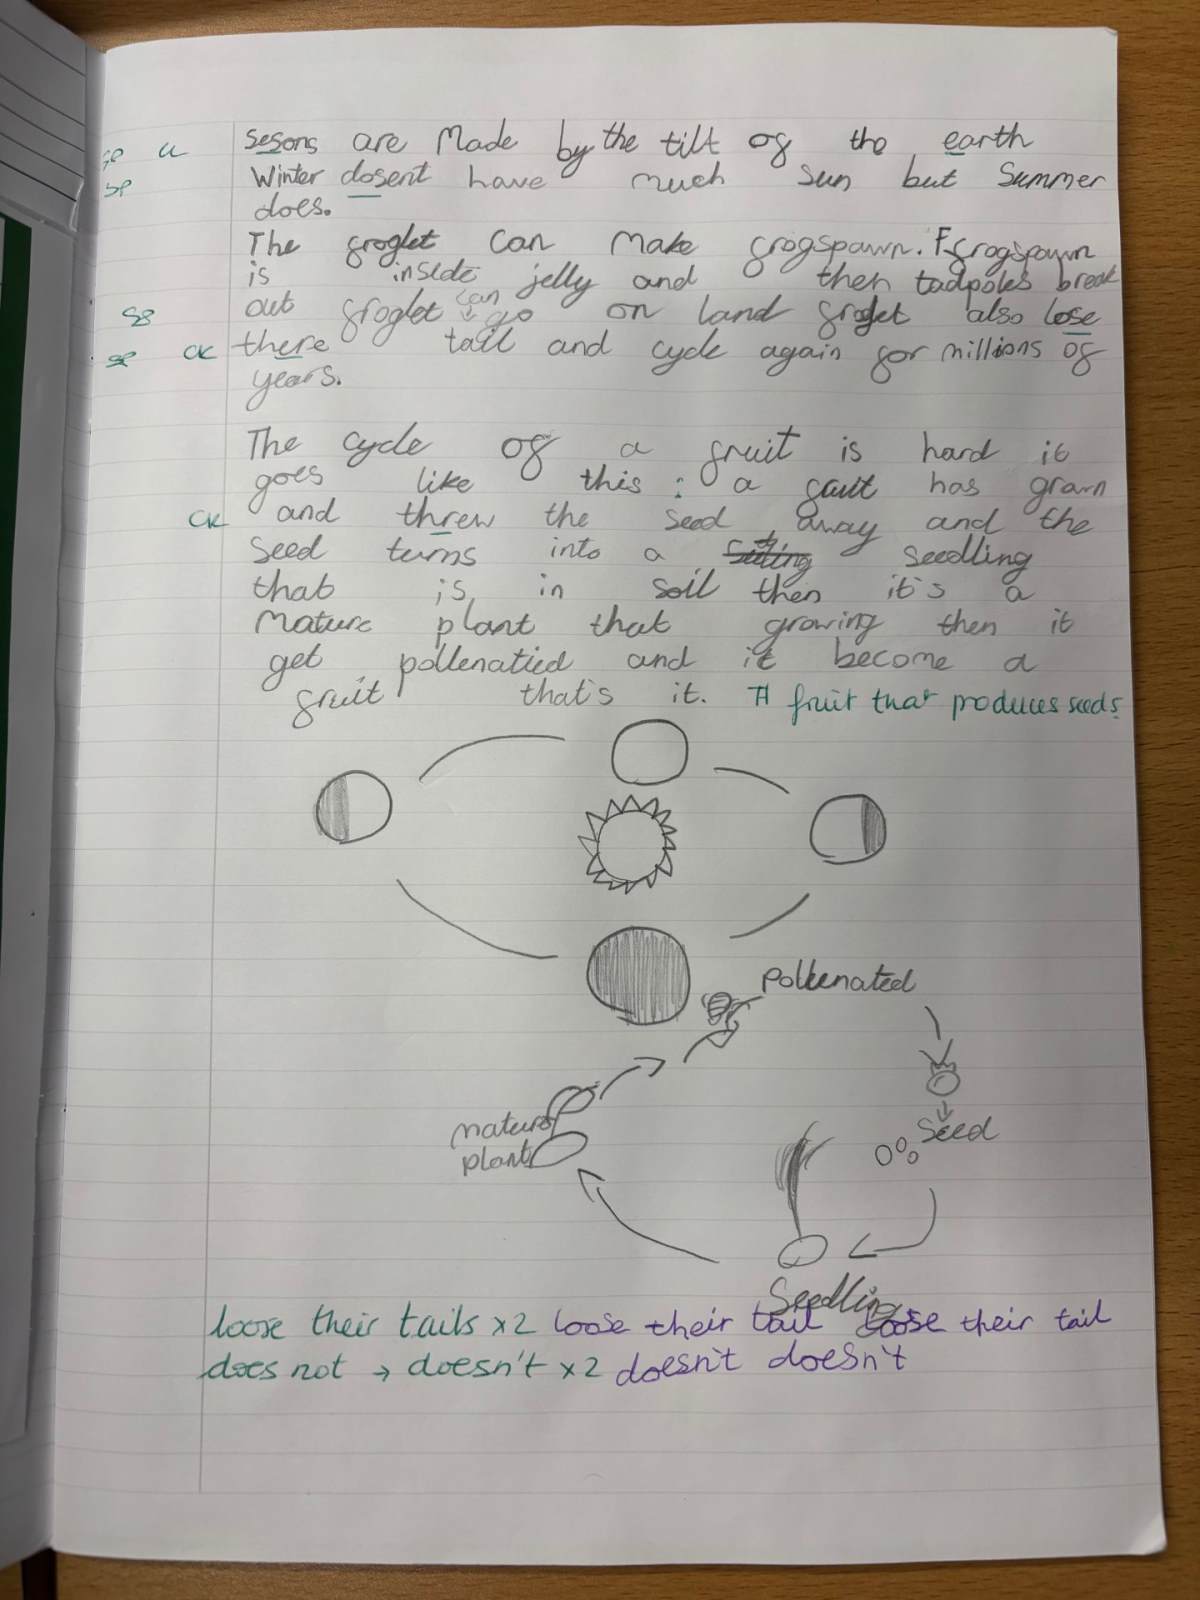 sp u sesons are Made by the tilt of the earth
sp Winter dosent have much sun but Summer
does.
The froglet can make frogspawn. Frogspawn
is inside jelly and then tadpoles break
out froglet can go on land froglet also lose
sp ck there tail and cycle again for millions of
years.
The cycle of a fruit is hard it
goes like this : a has
ck and threw the seed away and the
seed turns into a seedling
that is in soil then it's a
Mature plant that growing then it
get pollenatied and it become a
fruit that's it. A fruit that produces seeds.
pollenated
mature
plant
Seed
Seedling
loose their tails x2 loose their tail loose their tail
does not → doesn't x2 doesn't doesn't